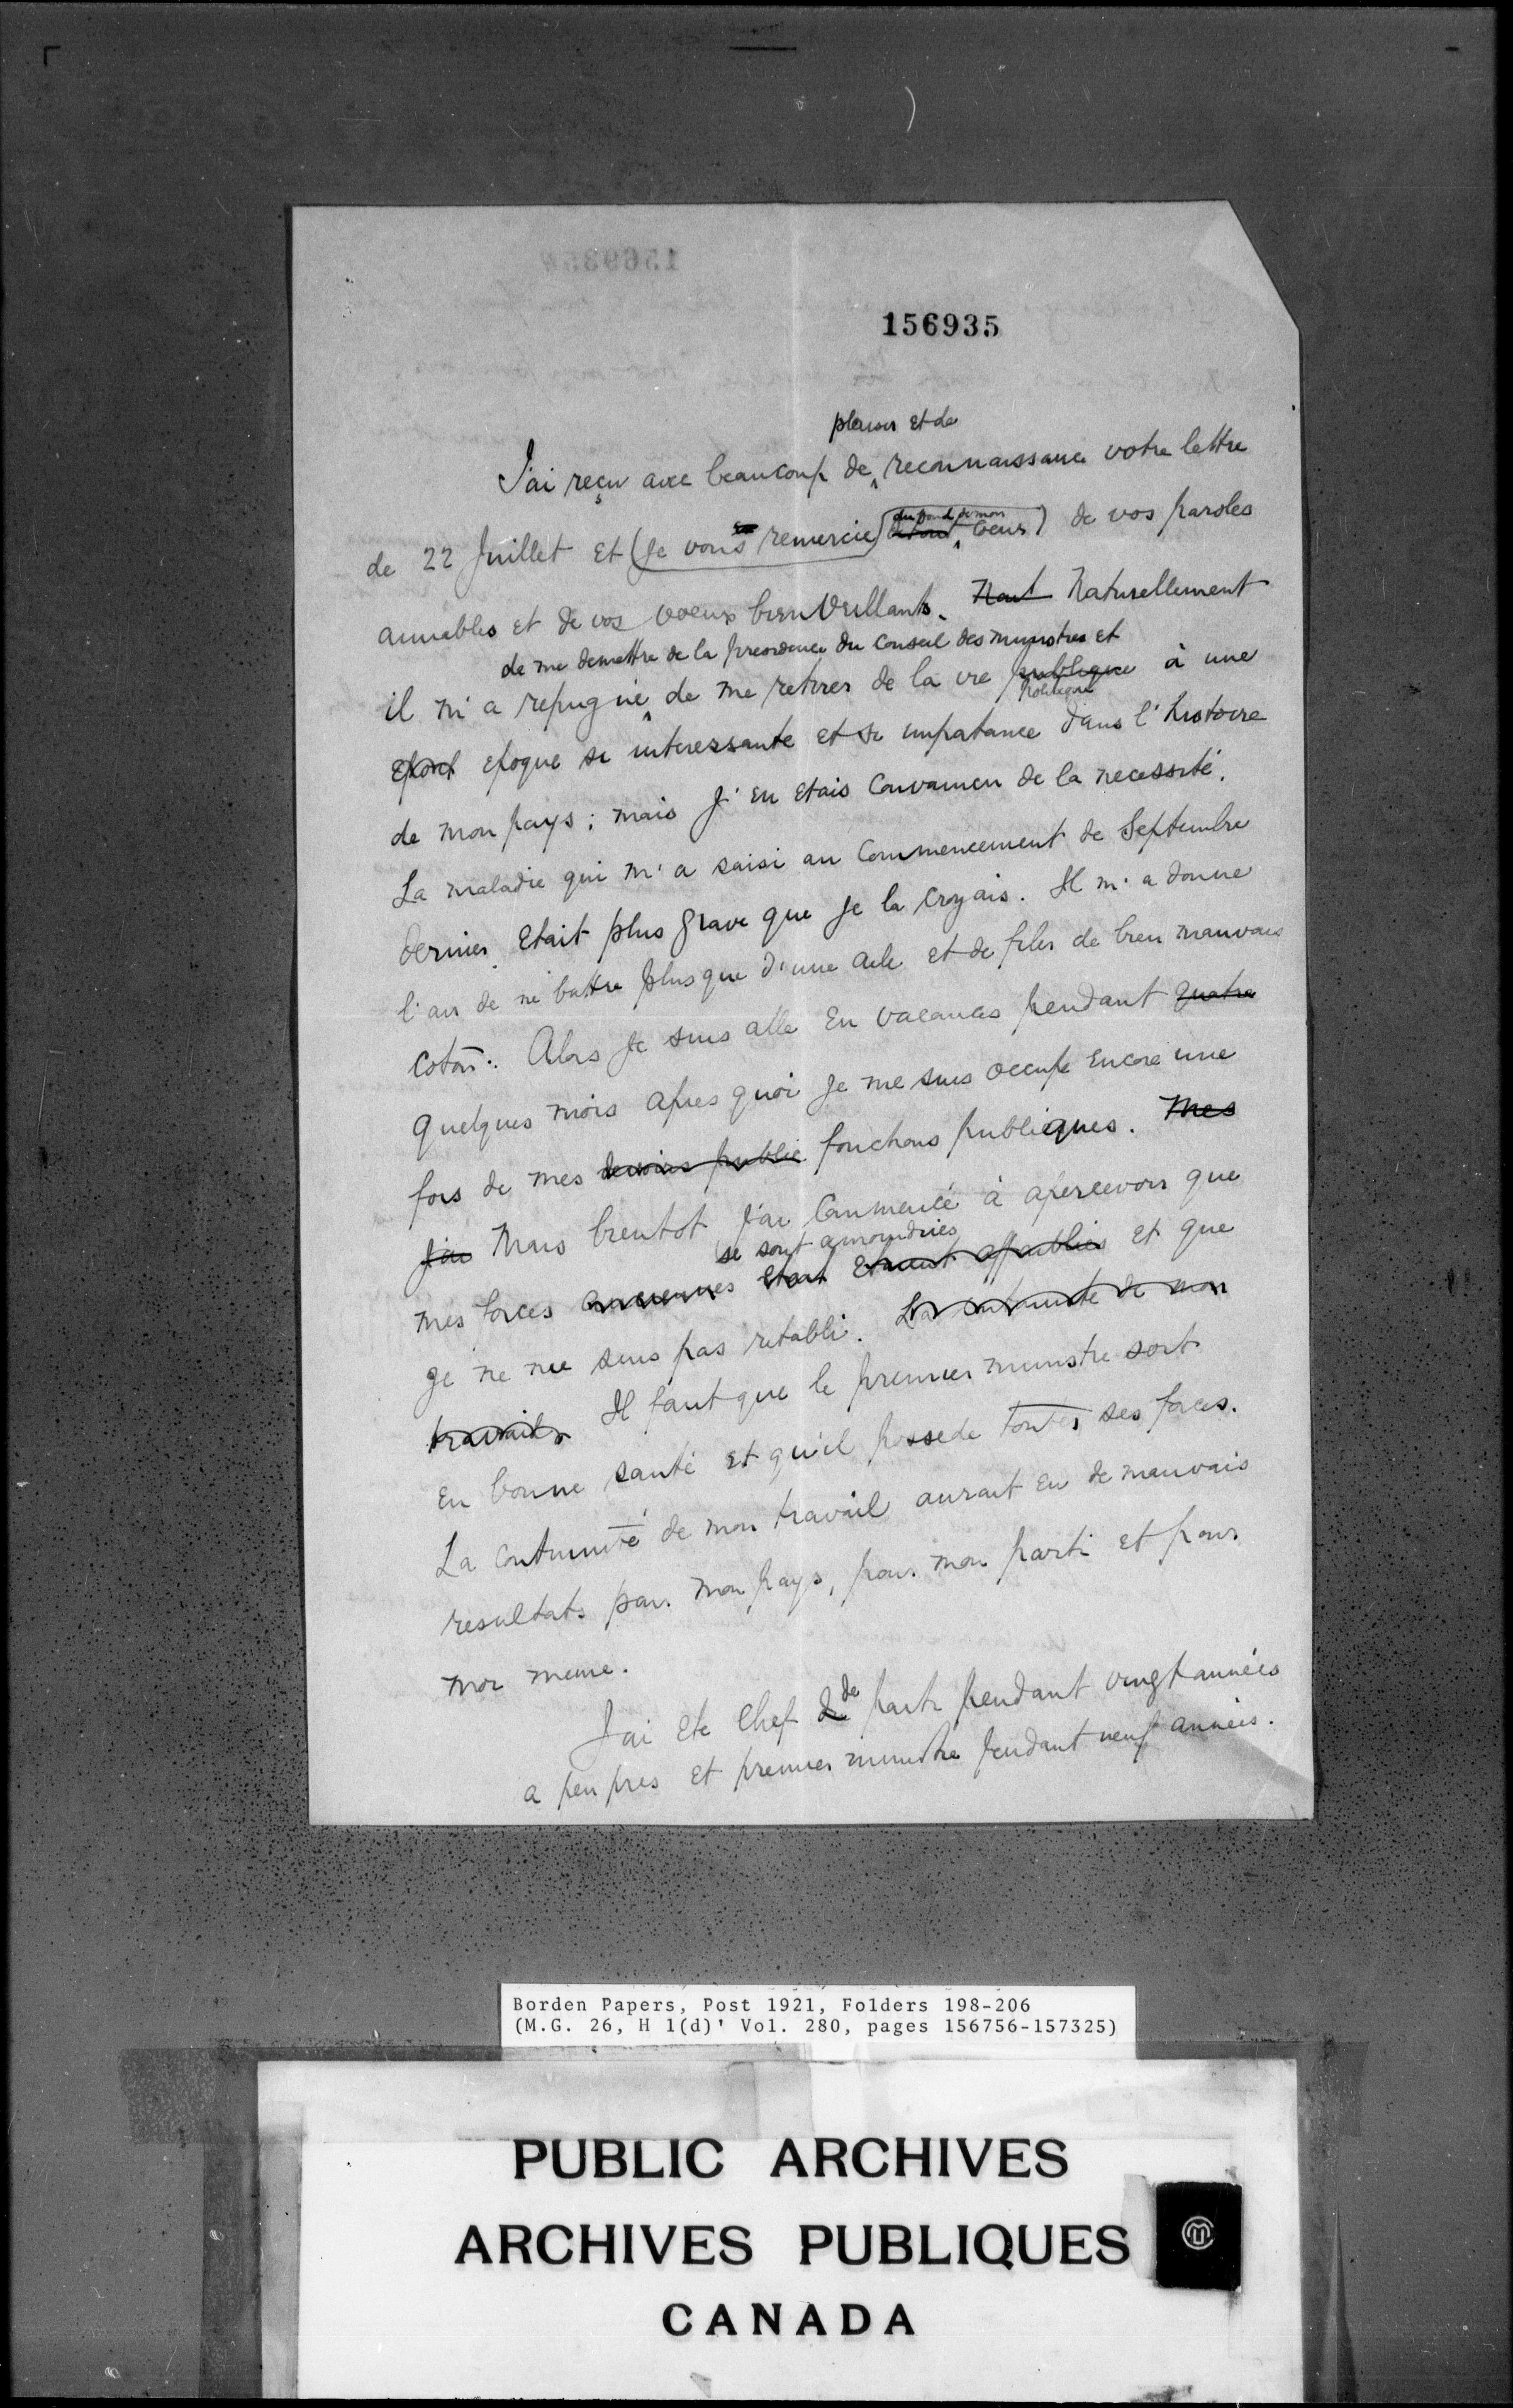 156935
plaisir et de
J'ai reçu avec beaucoup de reconnaissance votre lettre
du fond de mon
de 22 Juillet et (je vous remercie) coeur) de vos paroles
aimables et de vos voeux bienveillants. Naturellement
de me demettre de la presidence du Conseil des ministres et
il m'a repugné de me retirer de la vie publique à une
politique
epoque si interessante et si importance dans l'histoire
de mon pays; mais j'en etais convaincu de la necessité.
La maladie qui m'a saisi au commencement de Septembre
dernier etait plus grave que je la croyais. Il m'a donne
l'air de ne battre plus que d'une aile et de filer de bien mauvais
coton. Alors je suis alle en vacances pendant quatre
quelques mois apres quoi je me suis occupe encore une
fois de mes devoirs public fonctions publiques. Mes
J'ai Mais bientot j'ai commencé à apercevoir que
se sont amoindries
mes forces anciennes etait etaient affaiblies et que
je ne me suis pas retabli. La continuité de mon
travail Il faut que le premier ministre soit
en bonne santé et qu'il possede toutes ses forces.
La continuité de mon travail aurait eu de mauvais
resultats pour mon pays, pour mon parti et pour
moi meme.
J'ai ete chef de parti pendant vingt années
a peu pres et premier ministre pendant neuf années.
Borden Papers, Post 1921, Folders 198-206
(M.G. 26, H 1(d)' Vol. 280, pages 156756-157325)
PUBLIC ARCHIVES
ARCHIVES PUBLIQUES
CANADA